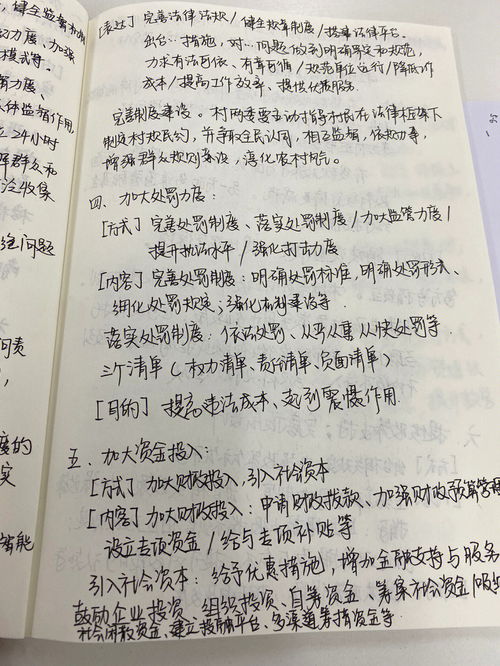 [表达] 完善法律法规/健全规章制度/搭建法律平台。
出台…措施，对…问题做到明确界定和规范，
力求有法可依、有章可循/规范单位运行/降低工作
成本/提高工作效率、提供优质服务。
完善制度建设。村两委要主动指导村民在法律框架下
制定村规民约，并争取全民认同，相互监督，依规办事，
增强群众规则意识，淳化农村风气。
四、加大处罚力度：
[方式] 完善处罚制度、落实处罚制度/加大监管力度/
提升执法水平/强化打击力度
[内容] 完善处罚制度：明确处罚标准，明确处罚形式、
细化处罚规定；强化机制建设等.
落实处罚制度：依法处罚、从严从重从快处罚等.
三个清单（权力清单、责任清单、负面清单）
[目的] 提高违法成本、起到震慑作用.
五、加大资金投入：
[方式] 加大财政投入，引入社会资本
[内容] 加大财政投入：申请财政拨款、加强财政预算管理
设立专项资金/给与专项补贴等
引入社会资本：给予优惠措施，增加金融支持与服务
鼓励企业投资、组织投资、自筹资金、筹集社会资金/吸收
社会闲散资金、建立投融平台、多渠道筹措资金等.
健全监督机
力度、加强
模式等.
力度、
体监督作用
立24小时
群众和
泛收集
问题
问责
度的
实
智能